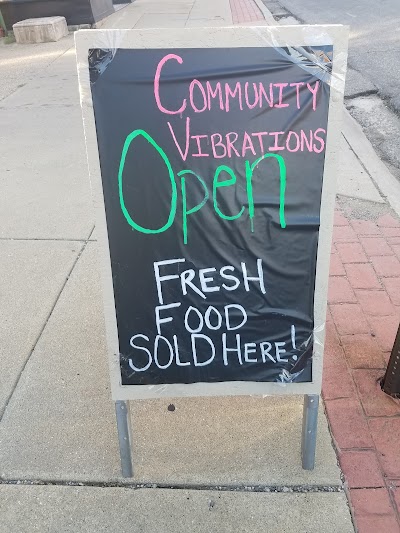 COMMUNITY
VIBRATIONS
Open
FRESH
FOOD
SOLD HERE!